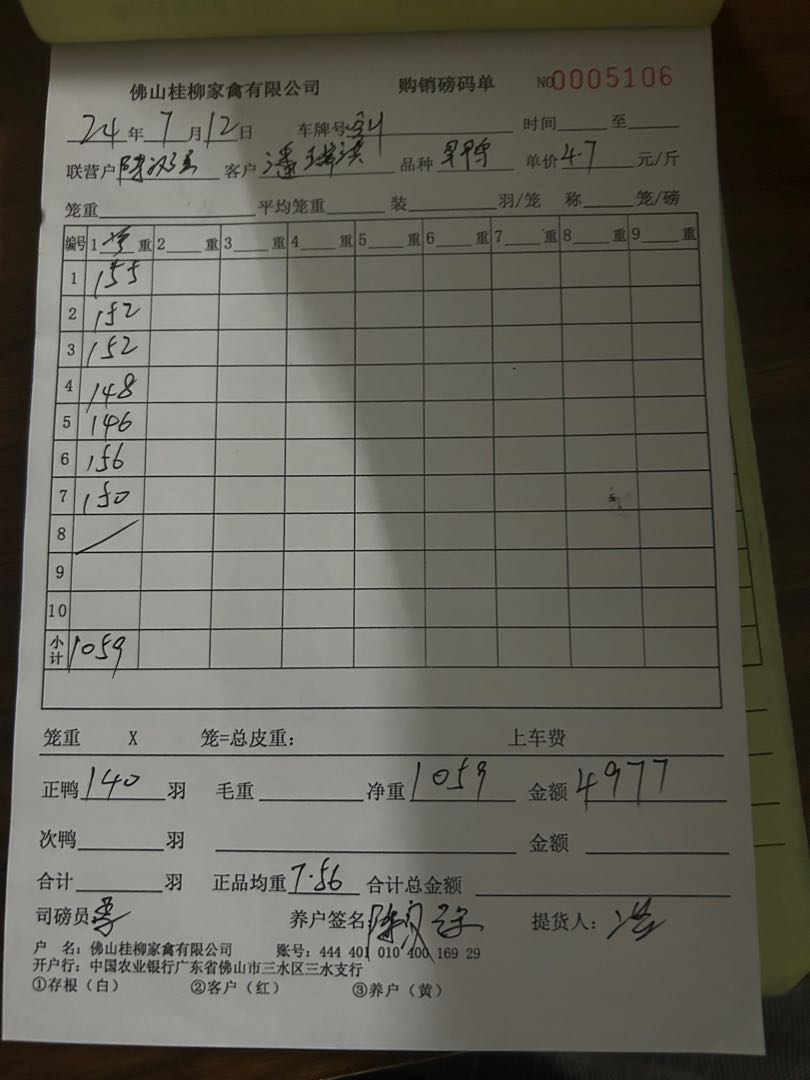 佛山桂柳家禽有限公司 购销磅码单 NO0005106
24年7月12日 车牌号 时间 至
联营户 客户 潘 品种 单价4.7元/斤
笼重 平均笼重 装 羽/笼 称 笼/磅
编号 1 重 2 重 3 重 4 重 5 重 6 重 7 重 8 重 9 重
1 155
2 152
3 152
4 148
5 146
6 156
7 150
8
9
10
小计 1059
笼重 X 笼=总皮重: 上车费
正鸭140羽 毛重 净重1059 金额4977
次鸭 羽 金额
合计 羽 正品均重7.56 合计总金额
司磅员 养户签名 提货人:
户 名: 佛山桂柳家禽有限公司 账号: 444 401 010 400 169 29
开户行: 中国农业银行广东省佛山市三水区三水支行
①存根(白) ②客户(红) ③养户(黄)